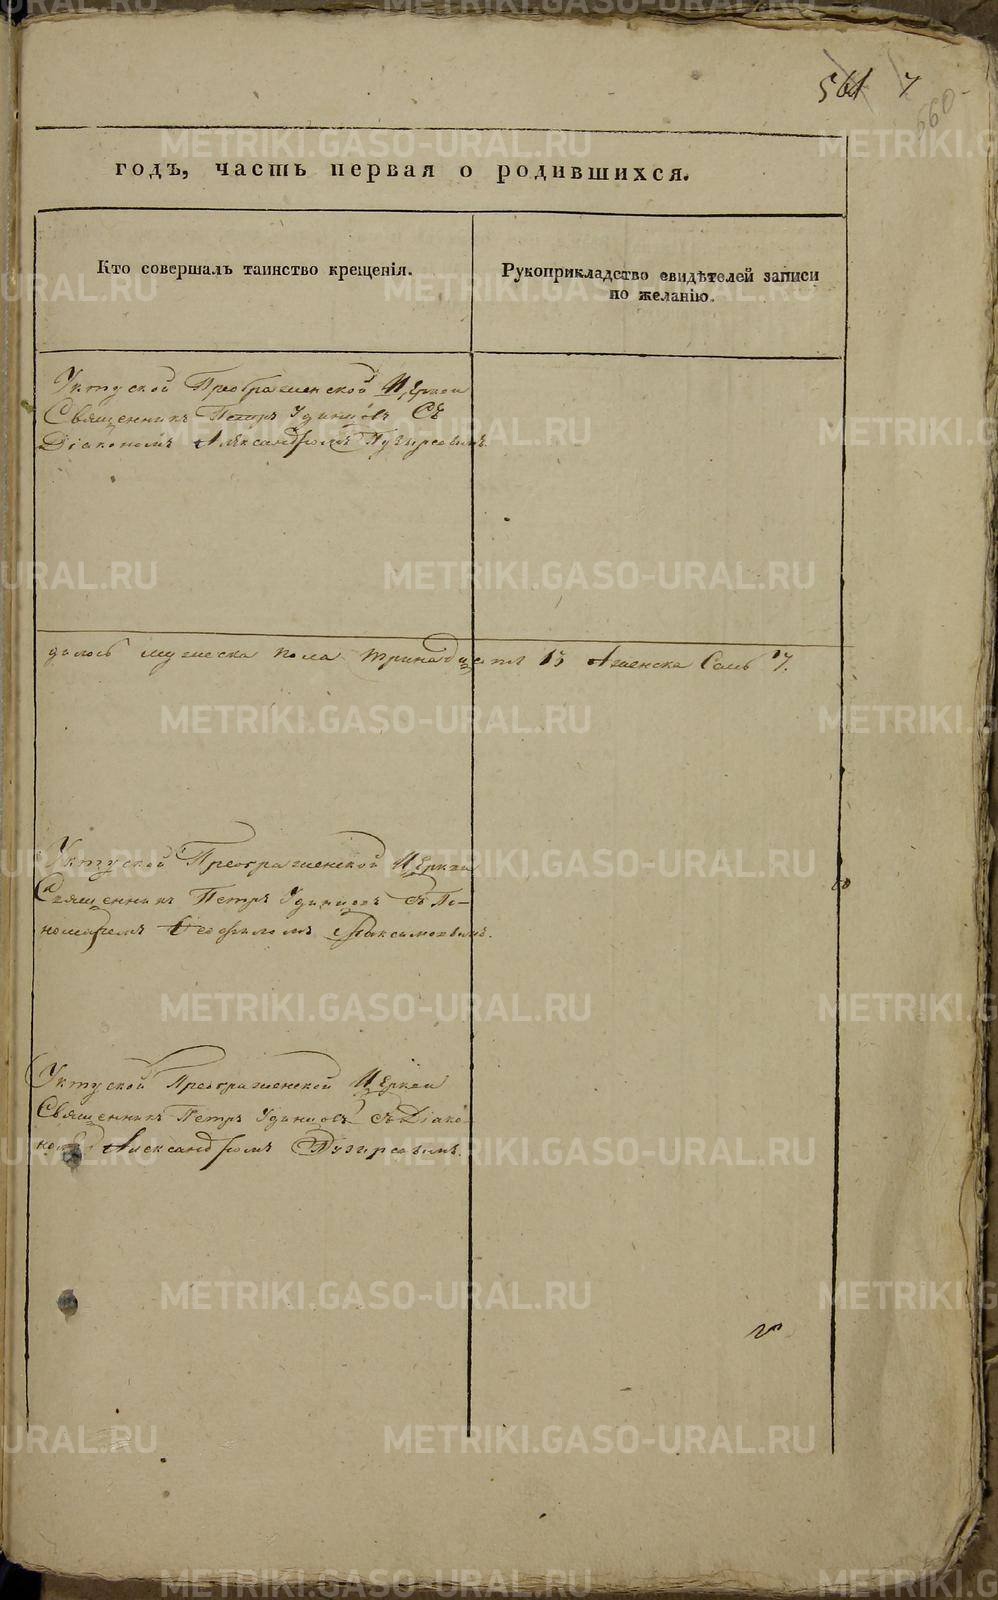 561 7
560
годъ, часть первая о родившихся.
Кто совершалъ таинство крещенія.
Рукоприкладство свидѣтелей записи
по желанію.
Уктуской Преображенской Церкви
Священникъ Петръ Удинцовъ Съ
Діакономъ Александромъ Пузыревымъ.
далось мужеска пола тринадцать 13 А женска Семь 7.
Уктуской Преображенской Церкви
Священникъ Петръ Удинцовъ съ По-
номаремъ Максимовымъ.
Уктуской Преображенской Церкви
Священникъ Петръ Удинцовъ съ Діако-
номъ Александромъ Пузыревымъ.
METRIKI.GASO-URAL.RU